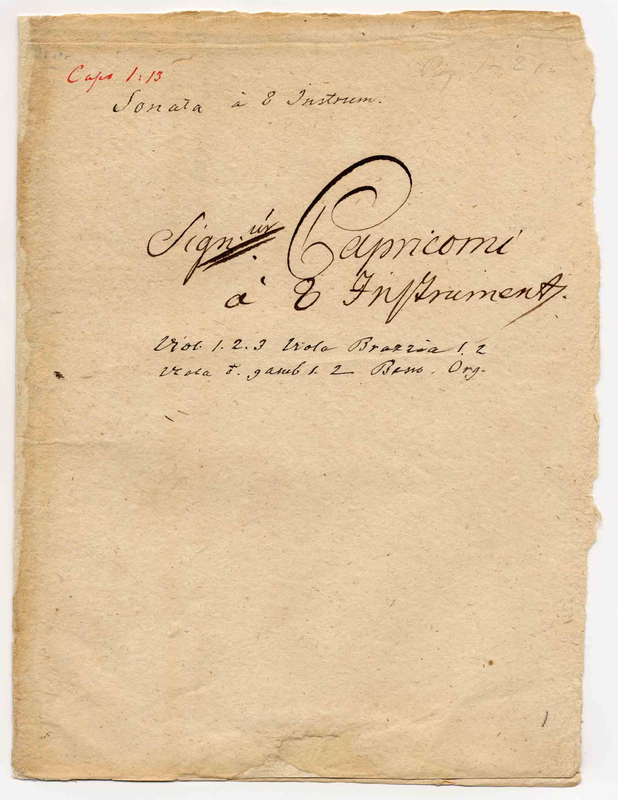 Caps 1:13
Sonata à 8 Instrum.
Sign: ur Capricorni
à 8 Instrument.
Viol. 1. 2. 3 Viola Brazzia 1. 2
Viola d. gamb 1. 2 Basso. Org.
1